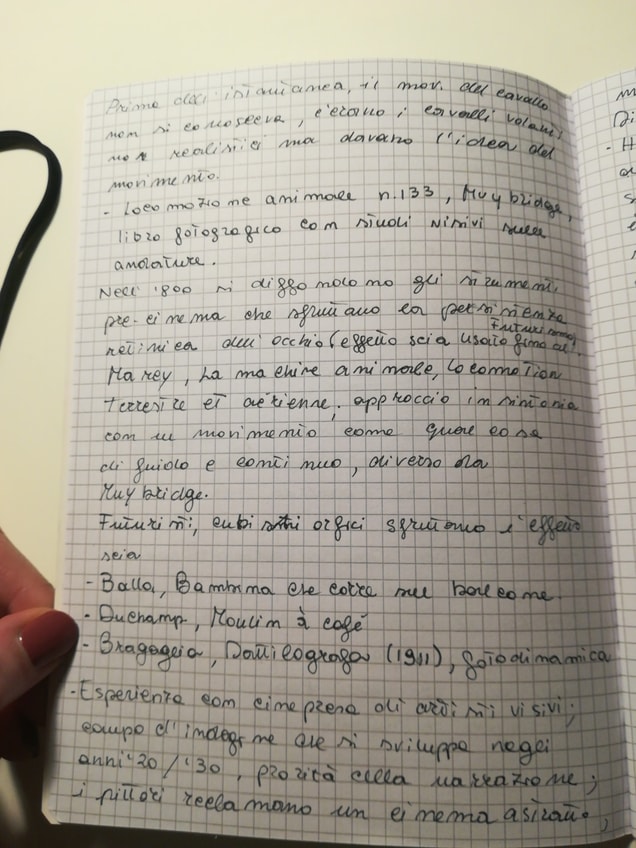 Prima dell'istantanea, il mov. del cavallo
non si conosceva, c'erano i cavalli volanti
non realistici ma davano l'idea del
movimento.
- Locomozione animale n.133, Muybridge,
libro fotografico con studi visivi sulle
andature.
Nell '800 si diffondono gli strumenti
pre-cinema che sfruttano la persistenza
retinica dell'occhio (effetto scia usato fino al Futurismo)
Marey, La machine animale, locomotion
terrestre et aérienne; approccio in sintonia
con il movimento come quale cosa
di fluido e continuo, diverso da
Muybridge.
Futuristi, cubisti orfici sfruttano l'effetto
scia
- Balla, Bambina che corre sul balcone.
- Duchamp, Moulin à café
- Bragaglia, Dattilografa (1911), fotodinamica
- Esperienza con cinepresa di artisti visivi;
campo d'indagine che si sviluppa negli
anni '20/'30, priorità alla narrazione;
i pittori reclamano un cinema astratto,
m
Di
- H